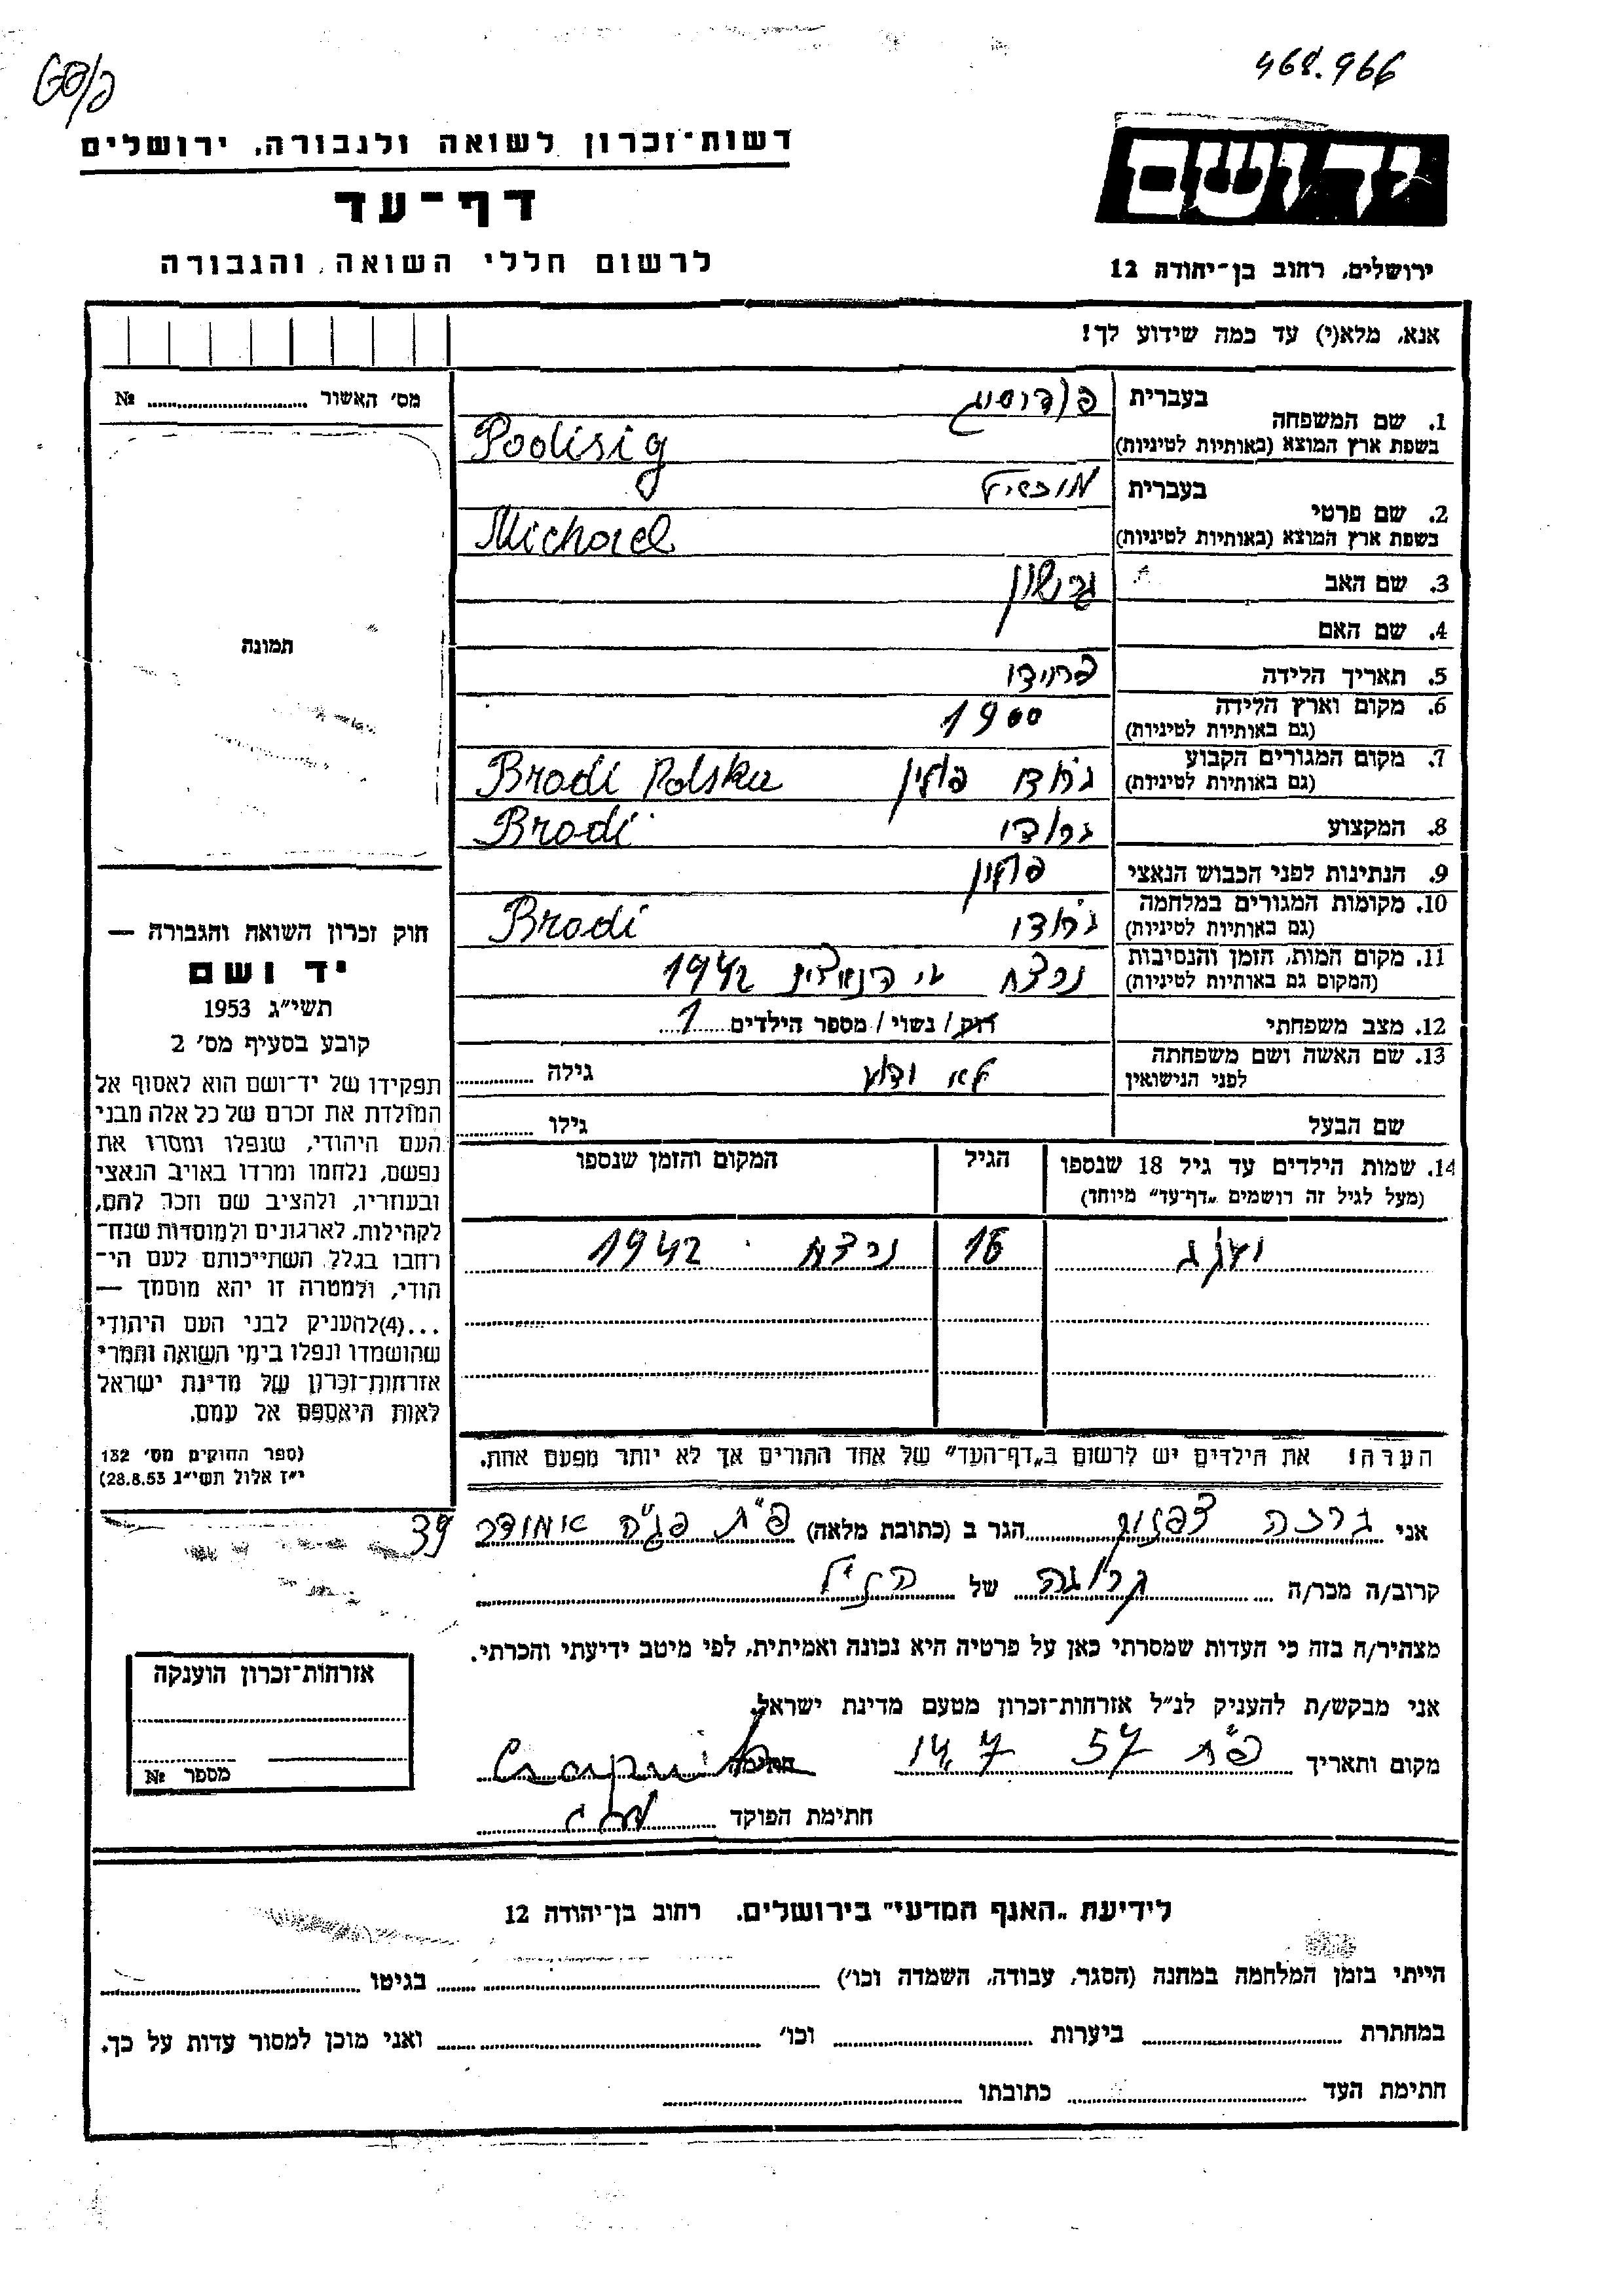 468.966
דשות-זכרון לשואה ולגבורה, ירושלים
יד ושם
דף-עד
לרשום חללי השואה והגבורה
ירושלים, רחוב בן-יהודה 12
אנא, מלא(י) עד כמה שידוע לך!
מס' האשור № 
1. שם המשפחה בעברית
בשפת ארץ המוצא (באותיות לטיניות) Podisig
2. שם פרטי בעברית מיכאל
בשפת ארץ המוצא (באותיות לטיניות) Michael
3. שם האב גרשון
4. שם האם
5. תאריך הלידה פרידה
6. מקום וארץ הלידה 1900
(גם באותיות לטיניות)
7. מקום המגורים הקבוע ברודי פולין Brodi Polska
(גם באותיות לטיניות)
8. המקצוע ברודי Brodi
9. הנתינות לפני הכבוש הנאצי פולין
10. מקומות המגורים במלחמה ברודי Brodi
(גם באותיות לטיניות)
11. מקום המות, הזמן והנסיבות נרצח ע"י הנאצים 1942
(המקום גם באותיות לטיניות)
12. מצב משפחתי רוק / נשוי / מספר הילדים 1
13. שם האשה ושם משפחתה לא ידוע גילה
לפני הנישואין
שם הבעל גילו
14. שמות הילדים עד גיל 18 שנספו הגיל המקום והזמן שנספו
(מעל לגיל זה רושמים „דף-עד" מיוחד)
16 נרצח 1942
הערה! את הילדים יש לרשום ב„דף-העד" של אחד ההורים אך לא יותר מפעם אחת.
תמונה
חוק זכרון השואה והגבורה —
יד ושם
תשי"ג 1953
קובע בסעיף מס' 2
תפקידו של יד-ושם הוא לאסוף אל
המולדת את זכרם של כל אלה מבני
העם היהודי, שנפלו ומסרו את
נפשם, נלחמו ומרדו באויב הנאצי
ובעוזריו, ולהציב שם וזכר להם,
לקהילות, לארגונים ולמוסדות שנח-
רחבו בגלל השתייכותם לעם הי-
הודי, ולמטרה זו יהא מוסמך —
...(4)להעניק לבני העם היהודי
שהושמדו ונפלו בימי השואה והמרי
אזרחות-זכרון של מדינת ישראל
לאות היאספם אל עמם.
(ספר החוקים מס' 132
י"ז אלול תשי"ג 28.8.53)
אני הגר ב (כתובת מלאה) פ"ת 39
קרוב/ה מכר/ה קרובה של הנ"ל
מצהיר/ה בזה כי העדות שמסרתי כאן על פרטיה היא נכונה ואמיתית, לפי מיטב ידיעתי והכרתי.
אני מבקש/ת להעניק לנ"ל אזרחות-זכרון מטעם מדינת ישראל.
מקום ותאריך פ"ת 14.7 57 חתימה
חתימת הפוקד
אזרחות-זכרון הוענקה
מספר №
לידיעת „האגף המדעי" בירושלים. רחוב בן-יהודה 12
הייתי בזמן המלחמה במחנה (הסגר, עבודה, השמדה וכו') בגיטו
במחתרת ביערות וכו' ואני מוכן למסור עדות על כך.
חתימת העד כתובתו